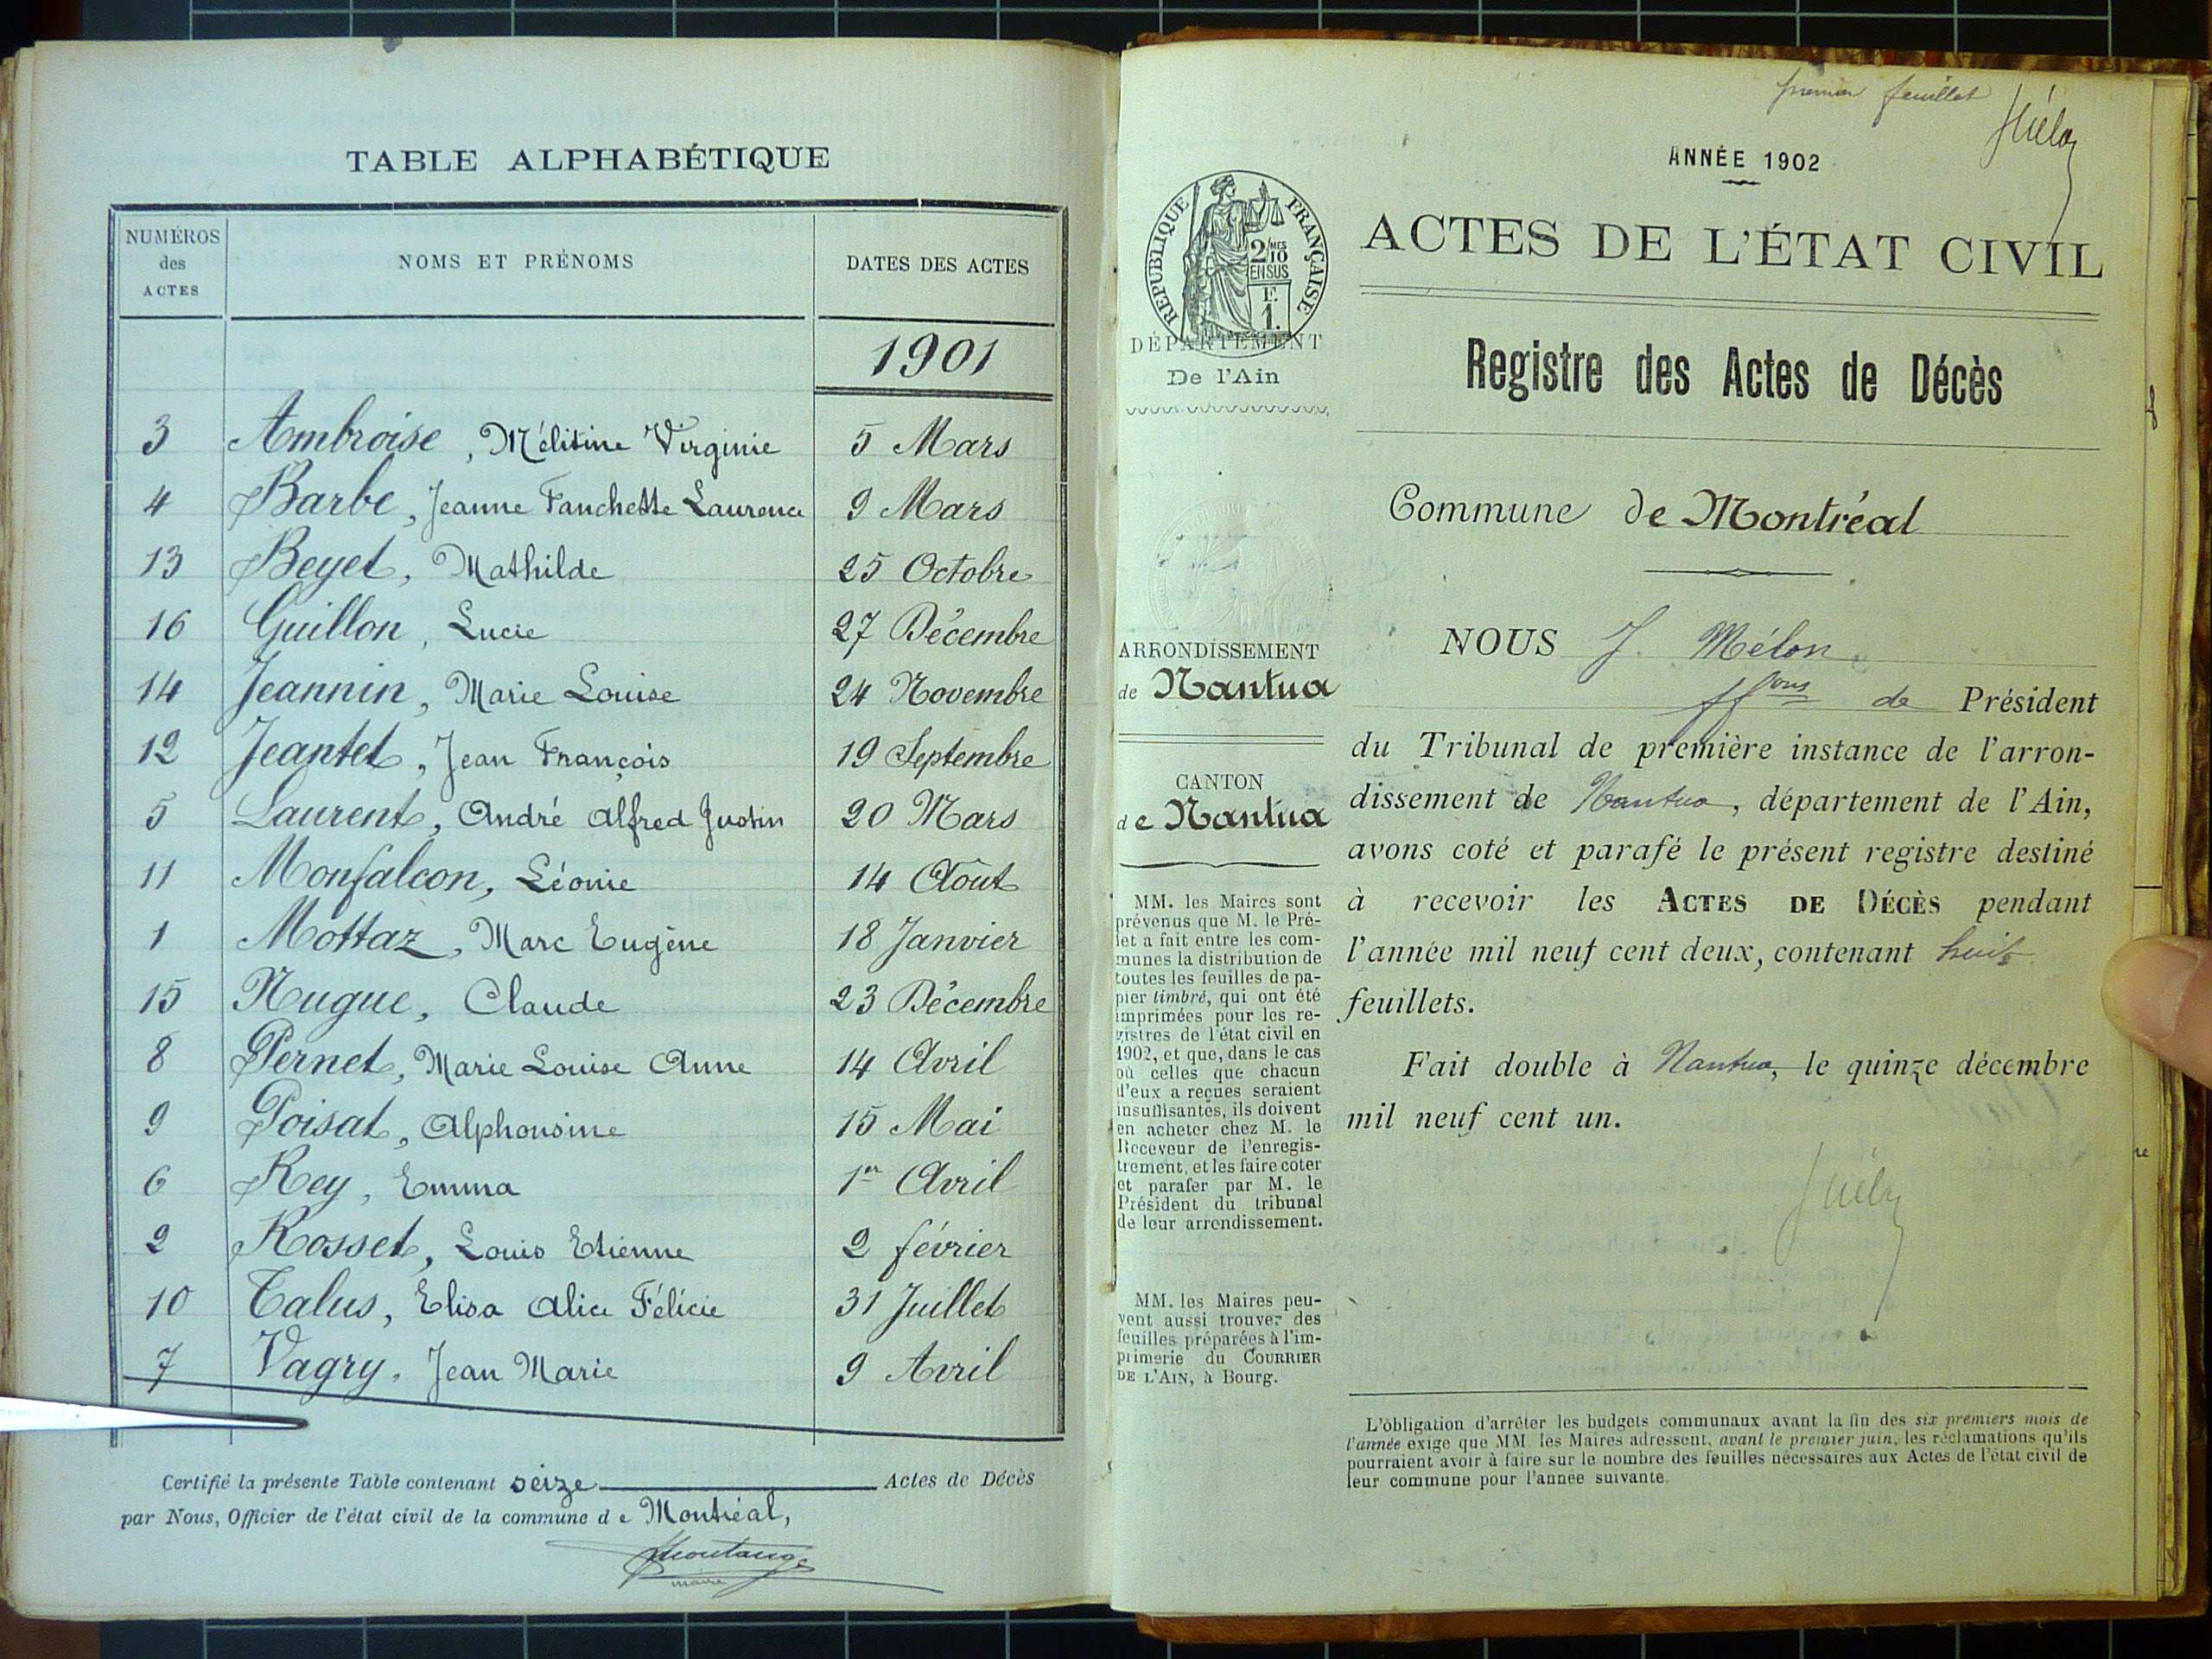 TABLE ALPHABÉTIQUE
NUMÉROS des ACTES NOMS ET PRÉNOMS DATES DES ACTES
1901
3 Ambroise, Mélitine Virginie 5 Mars
4 Barbe, Jeanne Fanchette Laurence 9 Mars
13 Beyet, Mathilde 25 Octobre
16 Guillon, Lucie 27 Décembre
14 Jeannin, Marie Louise 24 Novembre
12 Jeantet, Jean François 19 Septembre
5 Laurent, André Alfred Justin 20 Mars
11 Monfalcon, Léonie 14 Août
1 Mottaz, Marc Eugène 18 Janvier
15 Nugue, Claude 23 Décembre
8 Pernet, Marie Louise Anne 14 Avril
9 Poisat, Alphonsine 15 Mai
6 Rey, Emma 1er Avril
2 Rosset, Louis Etienne 2 février
10 Talus, Elisa Alice Félicie 31 Juillet
7 Vagry, Jean Marie 9 Avril
Certifié la présente Table contenant seize Actes de Décès
par Nous, Officier de l'état civil de la commune de Montréal,
maire
premier feuillet
ANNÉE 1902
RÉPUBLIQUE FRANÇAISE
2/10MES
EN SUS
F.
1.
DÉPARTEMENT
De l'Ain
ARRONDISSEMENT
de Nantua
CANTON
de Nantua
MM. les Maires sont
prévenus que M. le Pré-
fet a fait entre les com-
munes la distribution de
toutes les feuilles de pa-
pier timbré, qui ont été
imprimées pour les re-
gistres de l'état civil en
1902, et que, dans le cas
où celles que chacun
d'eux a reçues seraient
insuffisantes, ils doivent
en acheter chez M. le
Receveur de l'enregis-
trement, et les faire coter
et parafer par M. le
Président du tribunal
de leur arrondissement.
MM. les Maires peu-
vent aussi trouver des
feuilles préparées à l'im-
primerie du COURRIER
DE L'AIN, à Bourg.
ACTES DE L'ÉTAT CIVIL
Registre des Actes de Décès
Commune de Montréal
NOUS J. Mélon
ffons de Président
du Tribunal de première instance de l'arron-
dissement de Nantua, département de l'Ain,
avons coté et parafé le présent registre destiné
à recevoir les ACTES DE DÉCÈS pendant
l'année mil neuf cent deux, contenant huit
feuillets.
Fait double à Nantua, le quinze décembre
mil neuf cent un.
L'obligation d'arrêter les budgets communaux avant la fin des six premiers mois de
l'année exige que MM. les Maires adressent, avant le premier juin, les réclamations qu'ils
pourraient avoir à faire sur le nombre des feuilles nécessaires aux Actes de l'état civil de
leur commune pour l'année suivante.